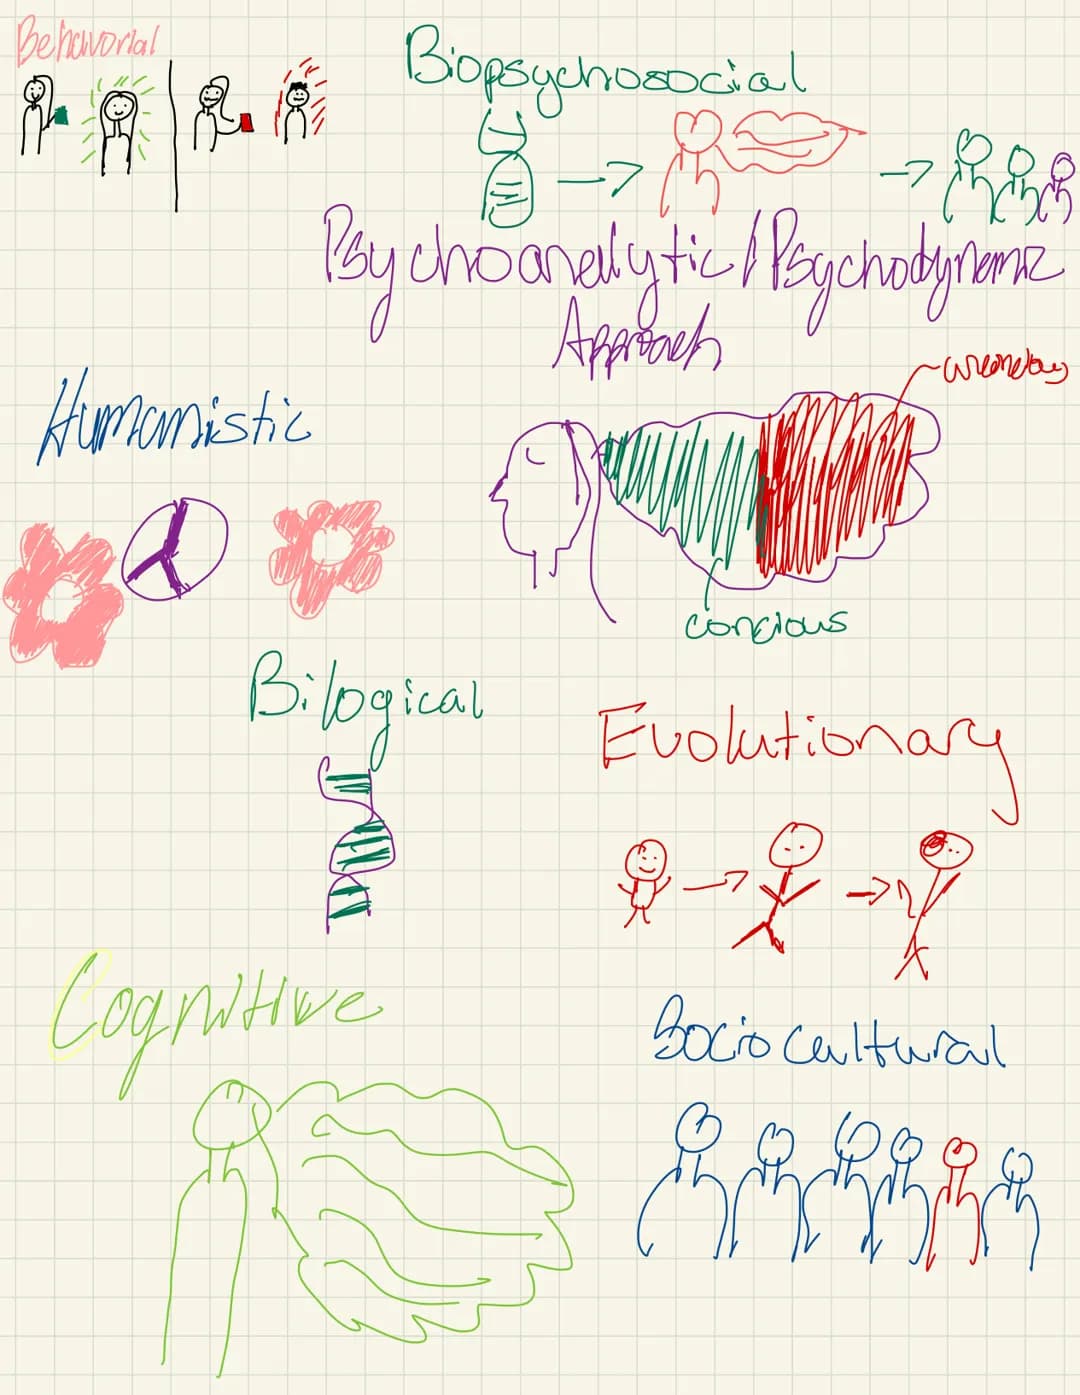 Behavorial
Biopsychosocial
Psychoanalytic / Psychodynamic
Approach
Humanistic
concious
Bilogical
Evolutionary
Cognitive
Sociocultural